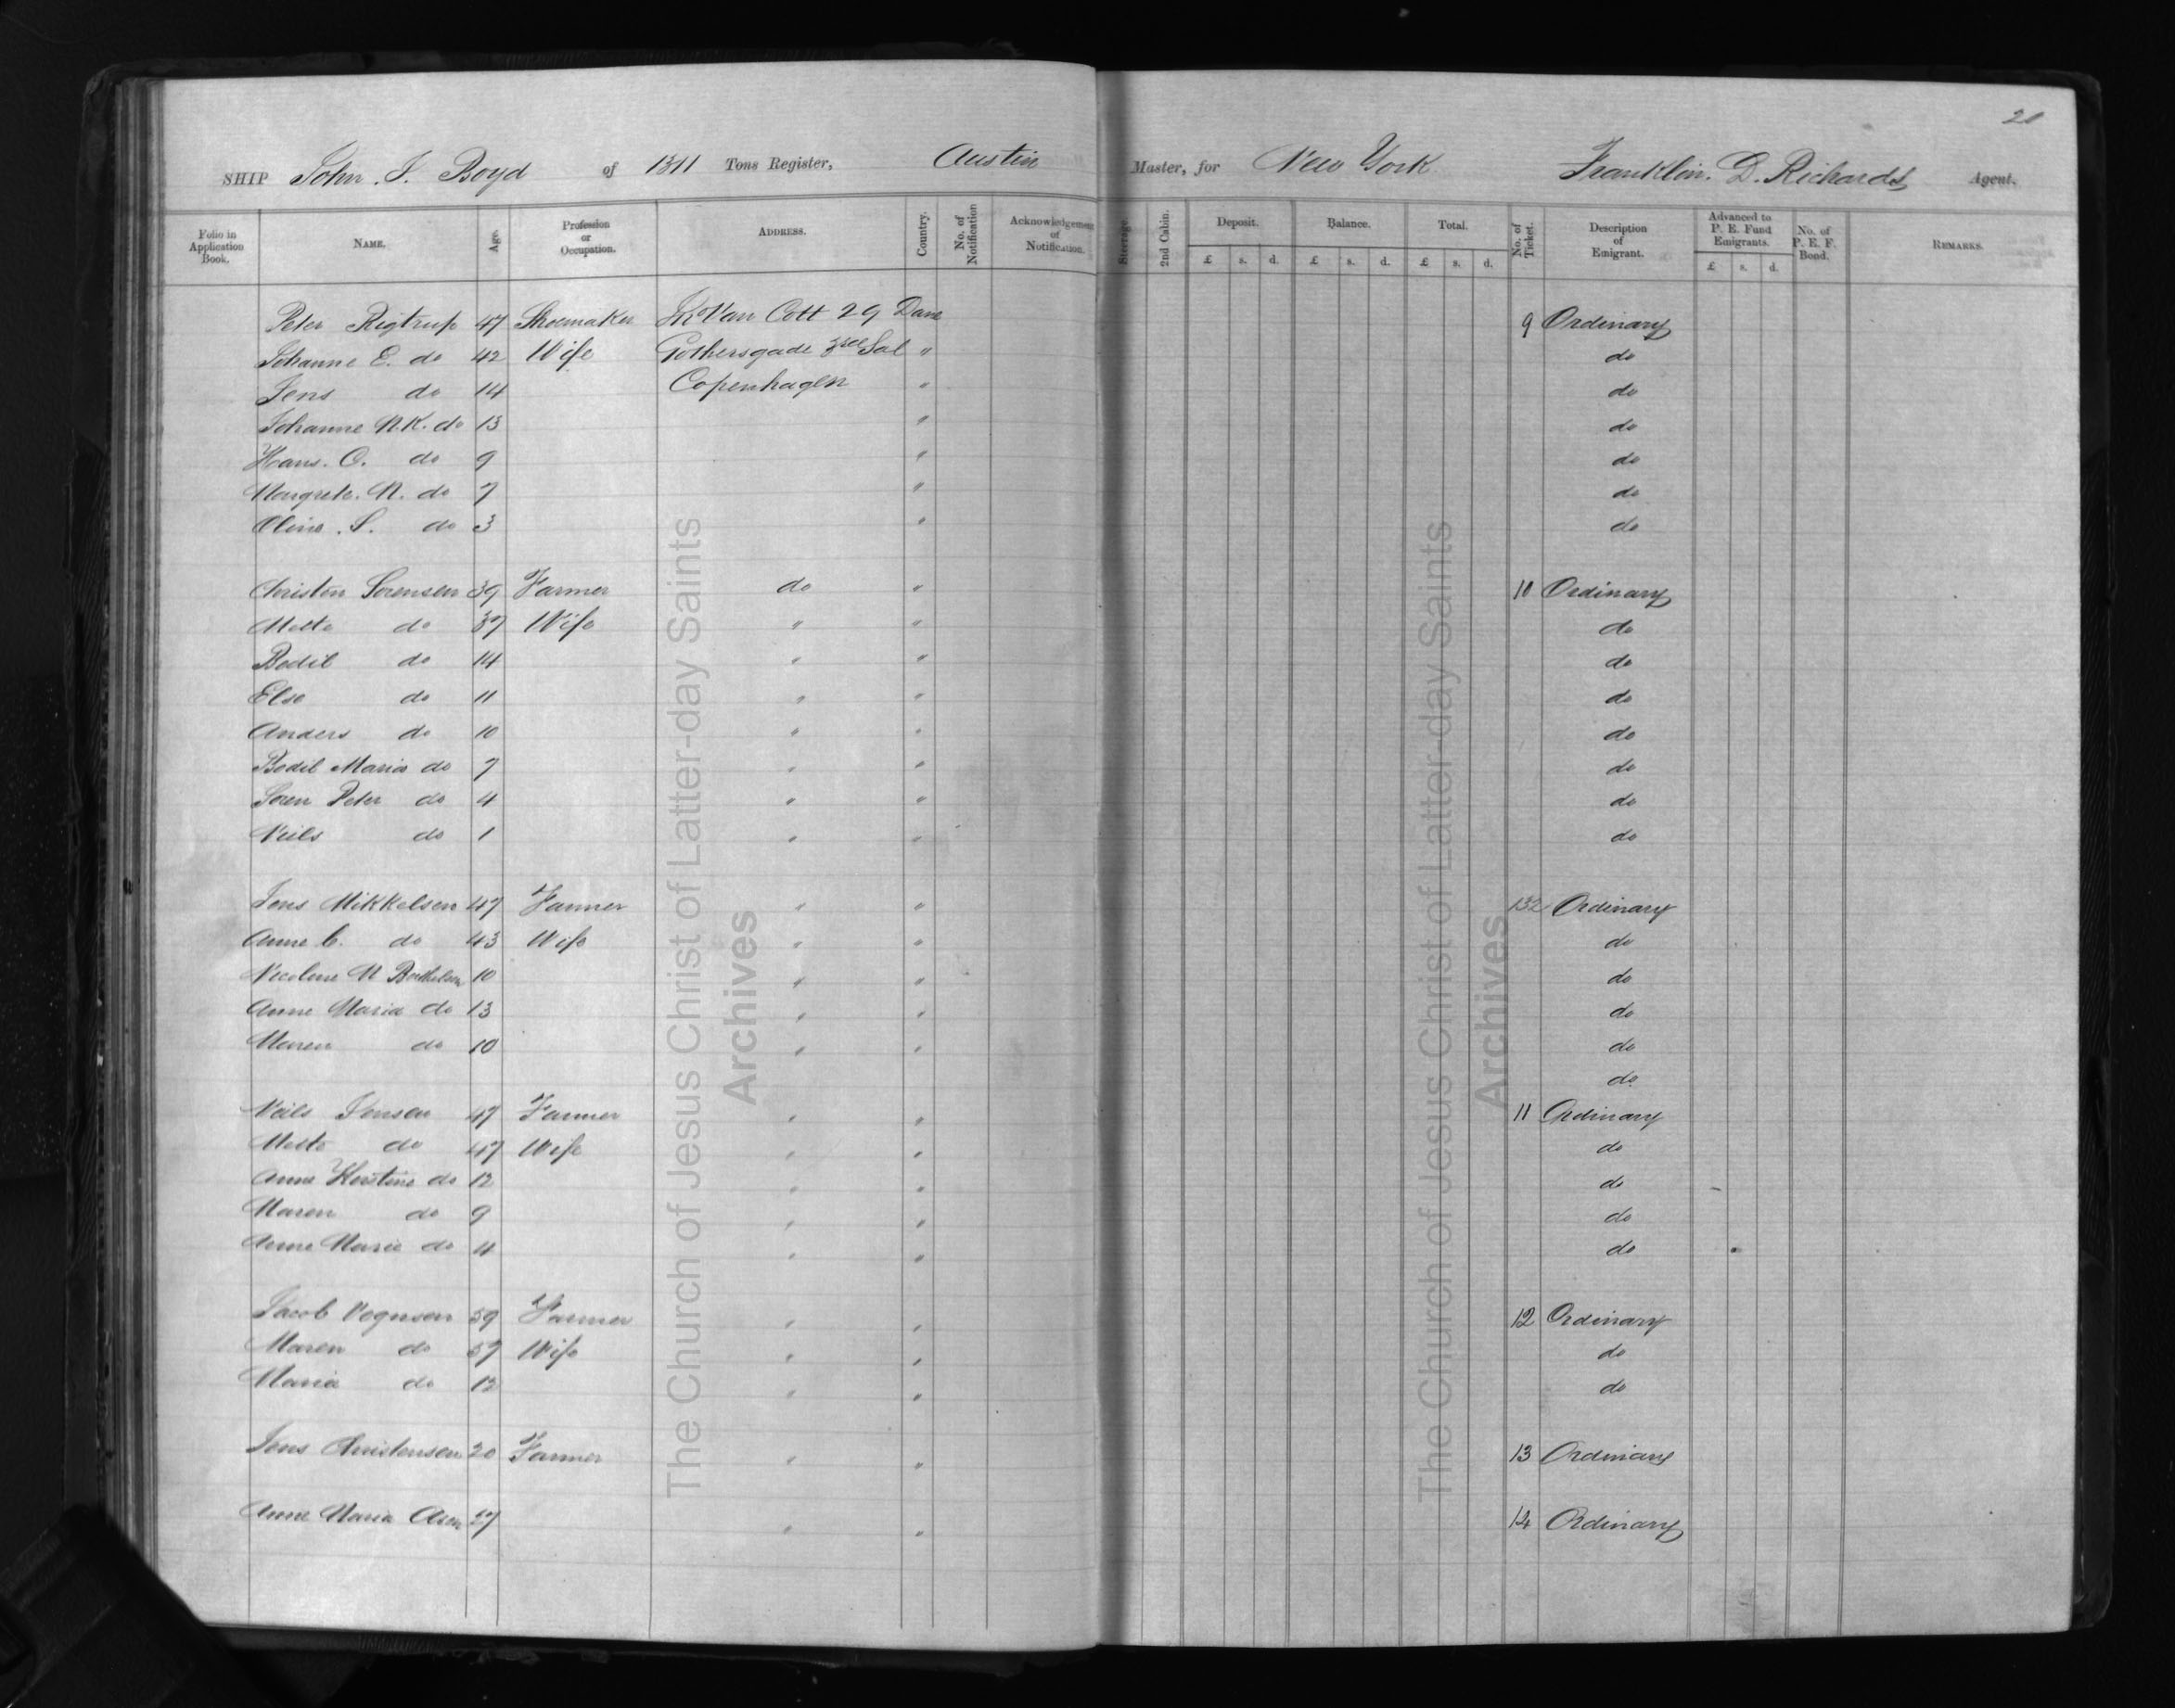 20
SHIP John J. Boyd of 1311 Tons Register, Austin Master, for New York Franklin D. Richards Agent.
Folio in Application Book. NAME. Age. Profession or Occupation. ADDRESS. Country. No. of Notification Acknowledgement of Notification. Steerage. 2nd Cabin. Deposit. £ s. d. Balance. £ s. d. Total. £ s. d. No. of Ticket. Description of Emigrant. Advanced to P. E. Fund Emigrants. £ s. d. No. of P. E. F. Bond. REMARKS.
Peter Rigtrup 47 Shoemaker Van Cott 29 Dane 9 Ordinary
Johanne E. do 42 Wife Gothersgade 3rd Sal " do
Jens do 14 Copenhagen " do
Johanne N.K. do 13 " do
Hans. O. do 9 " do
Margrete. N. do 7 " do
Oline. S. do 3 " do
Christen Sorensen 39 Farmer do " 10 Ordinary
Mette do 37 Wife " " do
Bodil do 14 " " do
Else do 11 " " do
Anders do 10 " " do
Bodil Maria do 7 " " do
Soren Peter do 4 " " do
Neils do 1 " " do
Jens Mikkelsen 47 Farmer " " 132 Ordinary
Anne C. do 43 Wife " " do
Nicoline M 10 " " do
Anne Maria do 13 " " do
Maren do 10 " " do
do
Neils Jensen 47 Farmer " " 11 Ordinary
Mette do 47 Wife " " do
Anne Kirstine do 12 " " do
Maren do 9 " " do
Anne Marie do 4 " " do
Jacob 59 Farmer " " 12 Ordinary
Maren do 57 Wife " " do
Maria do 12 " " do
Jens Christensen 20 Farmer " " 13 Ordinary
Anne Maria 27 " " 14 Ordinary
The Church of Jesus Christ of Latter-day Saints
Archives
The Church of Jesus Christ of Latter-day Saints
Archives